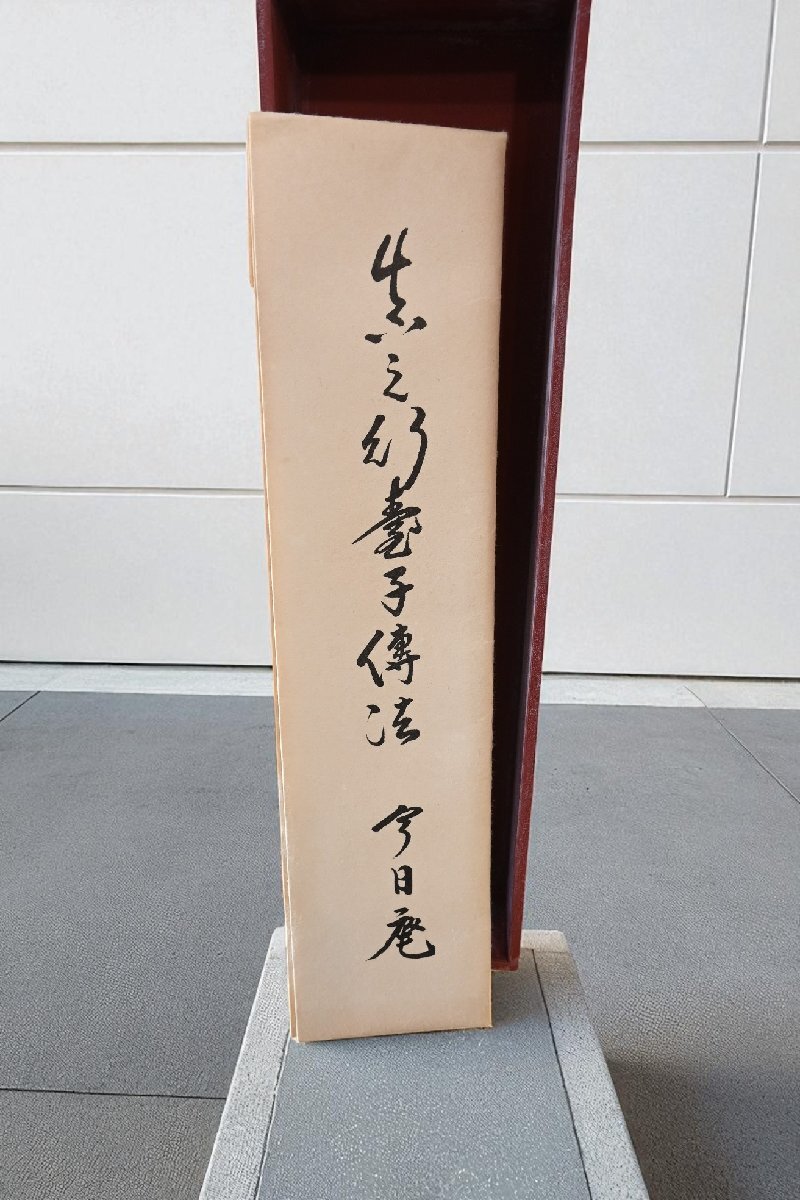 真之行臺子傳法 今日庵